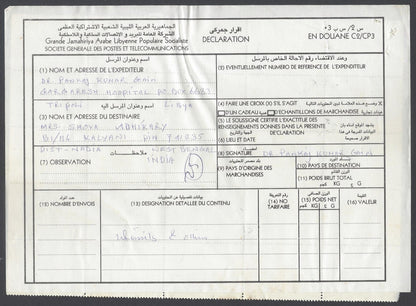 الجماهيرية العربية الليبية الشعبية الاشتراكية العظمى
الشركة العامة للبريد والاتصالات السلكية واللاسلكية
Grande Jamahiriya Arabe Libyenne Populaire Socialiste
SOCIETE GENERALE DES POSTES ET TELECOMMUNICATIONS
اقرار جمركي
DECLARATION
EN DOUANE C2/CP3
اسم وعنوان المرسل
(1) NOM ET ADRESSE DE L'EXPEDITEUR
DR PANKAJ KUMAR GAIN
GARGARESH HOSPITAL PO BOX 6683
TRIPOLI LIBYA
(9) EVENTUELLEMENT NUMERO DE REFERENCE DE L'EXPEDITEUR
اسم وعنوان المرسل اليه
(3) NOM ET ADRESSE DU DESTINAIRE
MRS SHOVA ADHIKARY
B1/26 KALYANI PIN 741235
DIST-NADIA WEST BENGAL
INDIA
(4) FAIRE UNE CROIX DO SIL S'AGIT
D'UN CADEAU D'ECHANTILLONS DE MARCHANDISE
(5) LE SOUSSIGNE CERTIFIE L'EXACTITUDE DES
RENSEIGNEMENTS DONNES DANS LA PRESENTE
DECLARATION
(6) LIEU ET DATE
(7) OBSERVATION
ملاحظات
(8) SIGNATURE DR PANKAJ KUMAR GAIN
(9) PAYS D'ORIGINE DES
MARCHANDISES
(10) PAYS DE DESTINATION
(11) POIDS BRUT TOTAL
KG G
(12) NOMBRE D'ENVOIS
(13) DESIGNATION DETAILLEE DU CONTENU
(14) NO
TARIFAIRE
(15) POIDS NET
KG G
(16) VALEUR